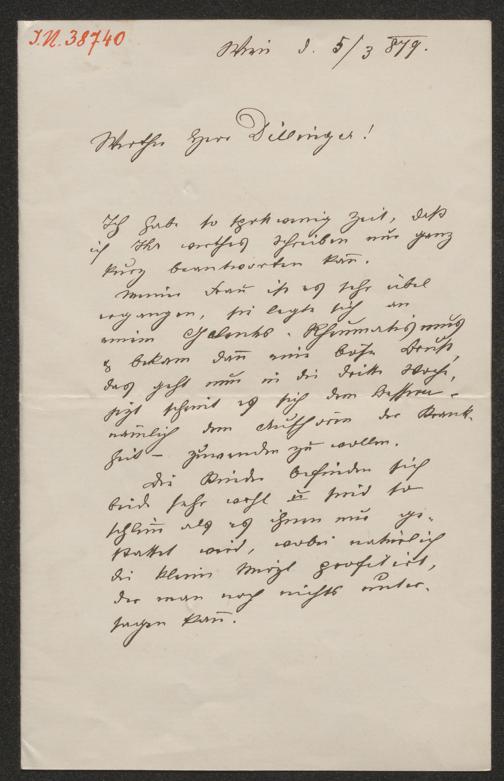 I.N. 38740
Wien d. 5/3 879.
Werther Herr Dillinger!
Ich habe so sehr wenig Zeit, daß
ich Ihr werthes Schreiben nur ganz
kurz beantworten kañ.
Meiner Frau ist es sehr übel
ergangen, sie legte sich an
einem Gelenks-Rheumatismus
& bekam dañ eine böse Brust,
das geht nun in die dritte Woche,
jetzt scheint es sich dem Bessern -
nämlich dem Aufhören der Krank-
heit - zuwenden zu wollen.
Die Kinder befinden sich
beide sehr wohl u sind so
schlim̄ als es ihnen nur ge-
stattet wird, wobei natürlich
die kleine profitirt,
der man noch nichts unter-
sagen kañ.